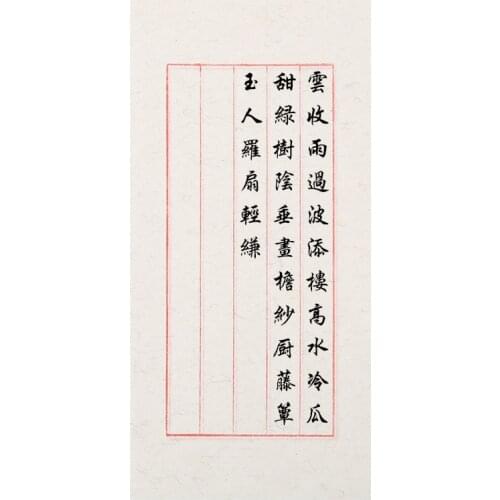 雲收雨過波添樓高水冷瓜
甜綠樹陰垂畫檐紗厨藤簟
玉人羅扇輕縑